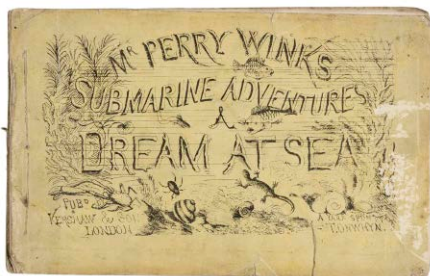 Mr PERRY WINKS
SUBMARINE ADVENTURES
A
DREAM AT SEA
PUBD
LONDON